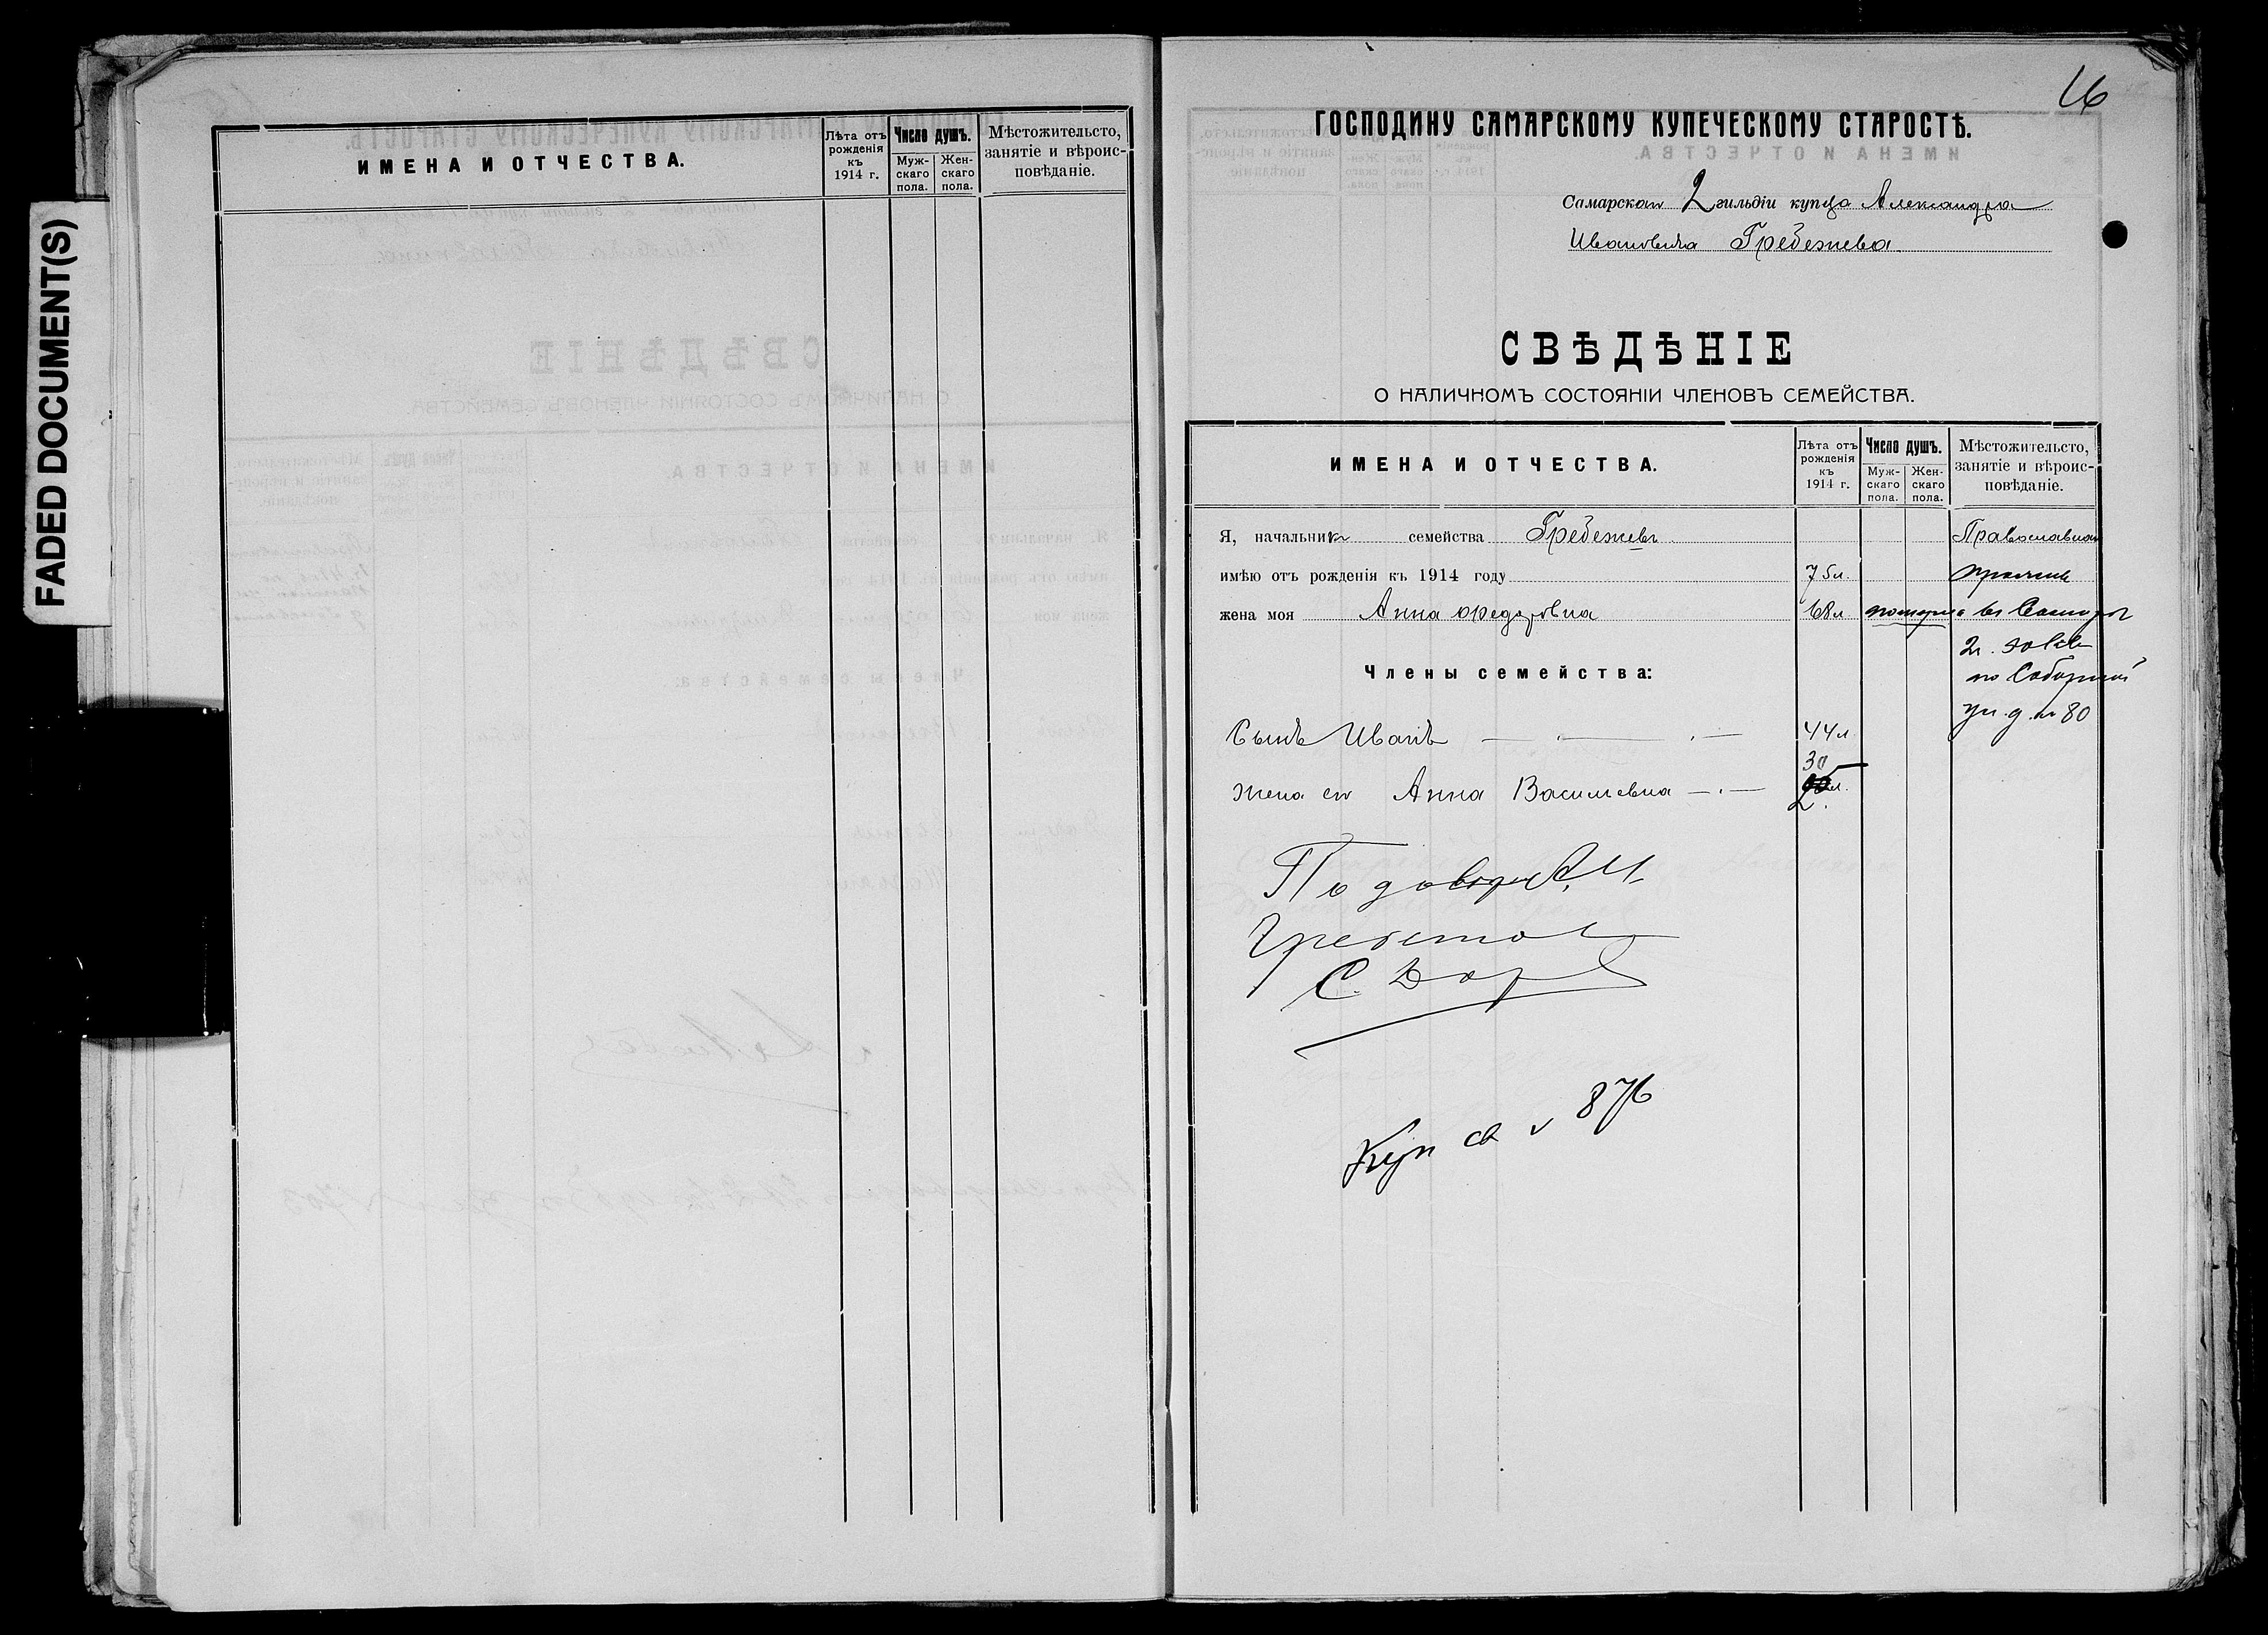 FADED DOCUMENT(S)
ИМЕНА И ОТЧЕСТВА.
Лѣта отъ рожденія къ 1914 г.
Число душъ.
Муж-скаго пола.
Жен-скаго пола.
Мѣстожительсто, занятіе и вѣроис-повѣданіе.
16
ГОСПОДИНУ САМАРСКОМУ КУПЕЧЕСКОМУ СТАРОСТѢ.
Самарскаго 2 гильдіи купца Александра
Ивановича Гребежева
СВѢДѢНІЕ
О НАЛИЧНОМЪ СОСТОЯНІИ ЧЛЕНОВЪ СЕМЕЙСТВА.
ИМЕНА И ОТЧЕСТВА.
Лѣта отъ рожденія къ 1914 г.
Число душъ.
Муж-скаго пола.
Жен-скаго пола.
Мѣстожительсто, занятіе и вѣроис-повѣданіе.
Я, начальник семейства Гребежевъ Православнаго
имѣю отъ рожденія къ 1914 году 75 л.
жена моя Анна Федоровна 68 л. въ Самарѣ
2й части
Члены семейства: по Соборной
ул. д. № 80
Сынъ Иванъ 44 л
30
Жена его Анна Васильевна л.
По довѣр А. И.
С.
Куп св № 876